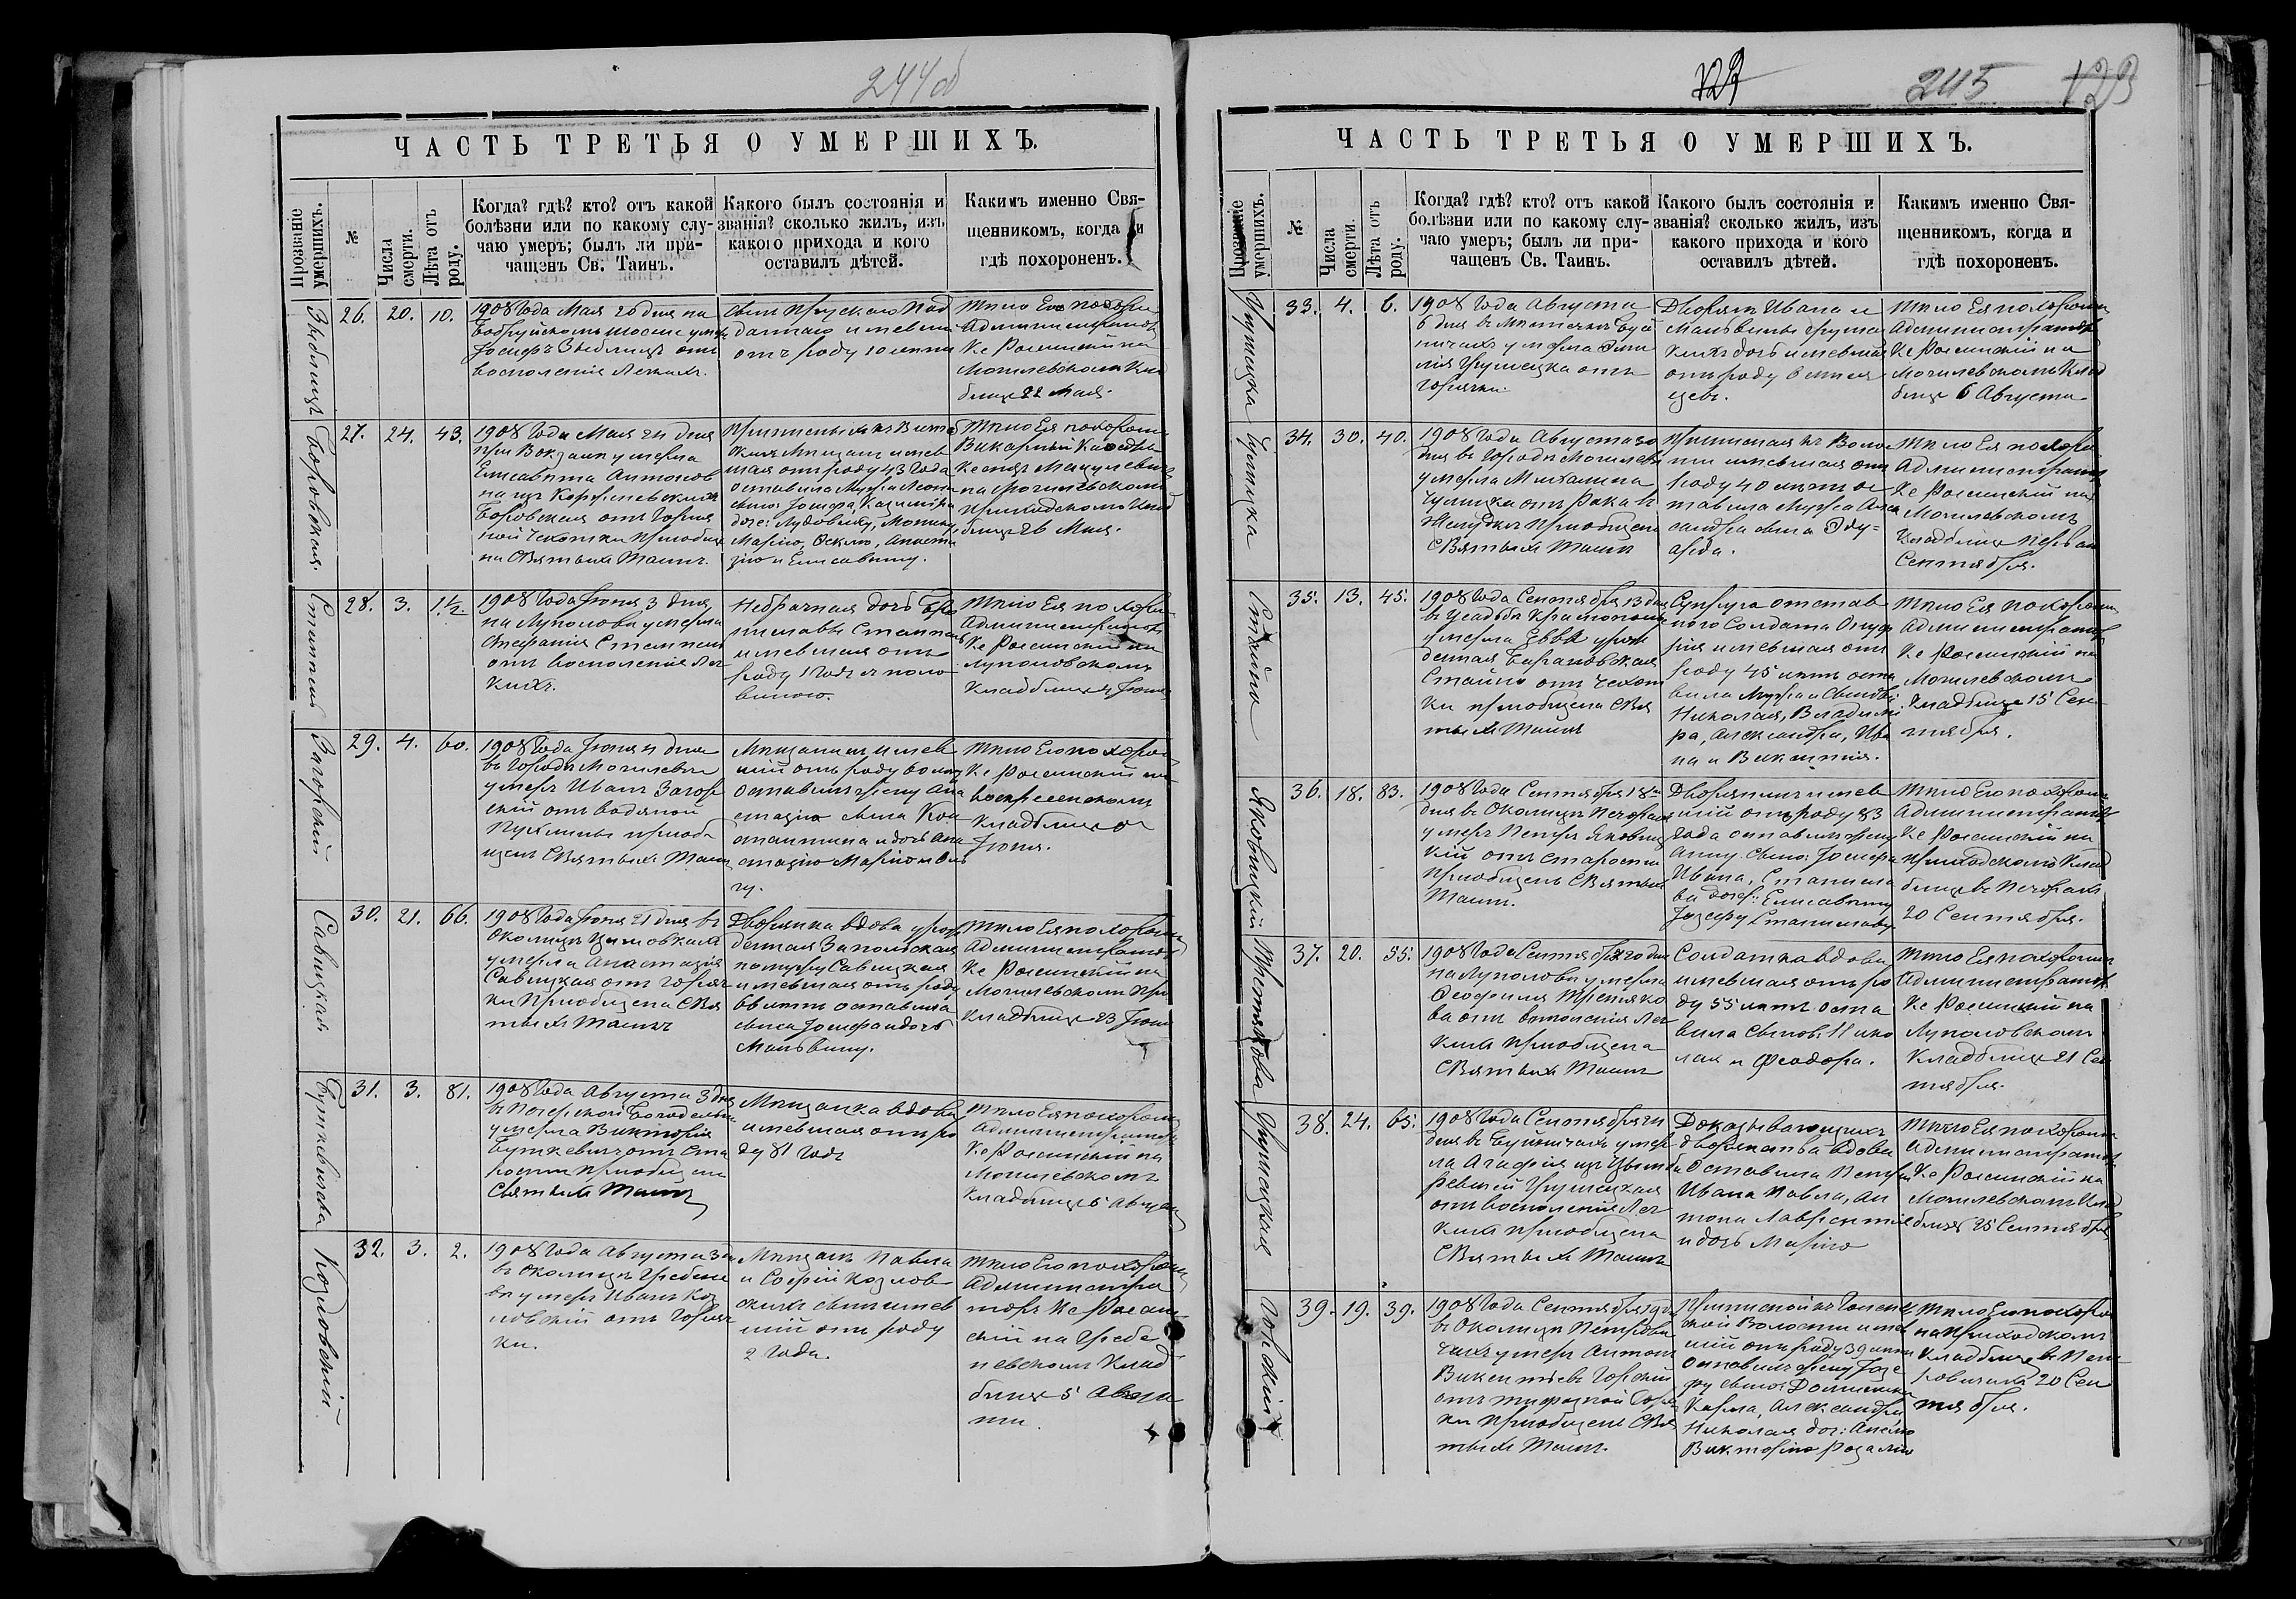 244об
ЧАСТЬ ТРЕТЬЯ О УМЕРШИХЪ.
Прозваніе умершихъ.
№
Числа смерти.
Лѣта отъ роду.
Когда? гдѣ? кто? отъ какой
болѣзни или по какому слу-
чаю умеръ; былъ ли при-
чащенъ Св. Таинъ.
Какого былъ состоянія и
званія? сколько жилъ, изъ
какого прихода и кого
оставилъ дѣтей.
Какимъ именно Свя-
щенникомъ, когда и
гдѣ похороненъ.
26. 20. 10.
1908 Года Мая 20 дня на
Бобруйскомъ шоссе умеръ
Іосифъ отъ
воспаленія легкихъ.
сынъ Прускаго Под
даннаго имевшій
отъ роду 10 летъ
Тело Его похоро
Администраторъ
Кс Росинскій на
Могилевскомъ Клад
бище 22 Мая.
Боровская
27. 24. 43.
1908 Года Мая 24 дня
при Вокзале умерла
Елисавета Антонов
на изъ Корфилевскихъ
Боровская отъ Горля
ной Чехотки приобще
на Святыхъ Таинъ.
имев
шая отъ роду 43 Года
оставила Мужа Леона
сыно: Іосифа, Казиміра
доче: Людовику, Монику
Марію, Феклю, Анаста
зію и Елисавету.
Тело Ея похорони
Викарный
на Могилевскомъ
Приходскомъ Клад
бище 26 Мая.
28. 3. 1 1/2.
1908 Года Іюня 3 дня
на Луполовѣ умерла
Стефанія
отъ воспаленія лег
кихъ.
Небрачная дочь Бро
ниславы
имевшая отъ
роду 1 Годъ и поло
виною.
Тело Ея похорони
Администраторъ
Кс Росинскій на
Луполовскомъ
Кладбище 4 Іюня
Загорскій
29. 4. 60.
1908 Года Іюня 4 дня
въ Городе Могилеве
умеръ Иванъ Загор
скій отъ водяной
Пухлины приоб
щенъ Святыхъ Таинъ
Мещанинъ имев
шій отъ роду 60 летъ
оставилъ жену Ана
стазію сына Кон
стантина и дочь Ана
стазію
Тело Его похорон
Кс Росинскій на
Воскресенскомъ
Кладбище 6
Іюня.
Савицкая
30. 21. 66.
1908 Года Іюня 21 дня въ
Околице
умерла Анастазія
Савицкая отъ Горяч
ки Приобщена Свя
тыхъ Таинъ
Дворянка вдова урож
денная Запольская
по мужу Савицкая
имевшая отъ роду
66 летъ оставила
сына Іосифа и дочь
Мальвину.
Тело Ея похорони
Администраторъ
Кс Росинскій на
Могилевскомъ При
Кладбище 23 Іюня
Буткевичева
31. 3. 81.
1908 Года Августа 3 дня
въ Печерской Богодельне
умерла Викторія
Буткевичъ отъ Ста
рости приобщена
Святыхъ Таинъ
Мещанка вдова
имевшая отъ ро
ду 81 Годъ
Тело Ея похорони
Администраторъ
Кс Росинскій на
Могилевскомъ
Кладбище 5 Августа
Козловскій
32. 3. 2.
1908 Года Августа 3 дн
въ Околице Гребене
ве умеръ Иванъ Коз
ловскій отъ Горяч
ки.
Мещанъ Павла
и Софіи Козлов
скихъ сынъ имев
шій отъ роду
2 Года.
Тело Его похорони
Администра
торъ Кс Росин
скій на Гребе
невскомъ Клад
бище 5 Авгус
та.
129
245
123
ЧАСТЬ ТРЕТЬЯ О УМЕРШИХЪ.
Прозваніе умершихъ.
№
Числа смерти.
Лѣта отъ роду.
Когда? гдѣ? кто? отъ какой
болѣзни или по какому слу-
чаю умеръ; былъ ли при-
чащенъ Св. Таинъ.
Какого былъ состоянія и
званія? сколько жилъ, изъ
какого прихода и кого
оставилъ дѣтей.
Какимъ именно Свя-
щенникомъ, когда и
гдѣ похороненъ.
33. 4. 6.
1908 Года Августа
6 дня въ Местечке Буй
ничахъ умерла Эми
лія отъ
горячки.
Дворянъ Ивана и
Мальвины
кихъ дочь имевшая
отъ роду 6 меся
цевъ.
Тело Ея похорони
Администраторъ
Кс Росинскій на
Могилевскомъ Клад
бище 6 Августа
34. 30. 40.
1908 Года Августа 30
дня въ Городе Могилеве
умерла Михалина
отъ Рака въ
Желудке Приобщена
Святыхъ Таинъ
Приписная къ Воло
сти имевшая отъ
роду 40 летъ ос
тавила Мужа Алек
сандра сына Эду=
арда.
Тело Ея похорони
Администраторъ
Кс Росинскій на
Могилевскомъ
Кладбище перваго
Сентября.
35. 13. 45.
1908 Года Сентября 13 дня
въ Усадьбе
умерла Евва урож
денная Барановская
отъ Чехот
ки приобщена Свя
тыхъ Таинъ
Супруга отстав
ного Солдата
имевшая отъ
роду 45 летъ оста
вила Мужа и сыновей
Николая, Владими
ра, Александра, Ива
на и Викентія.
Тело Ея похорони
Администраторъ
Кс Росинскій на
Могилевскомъ
Кладбище 15 Сен
тября.
Яковицкій
36. 18. 83.
1908 Года Сентября 18
дня въ Околице Печерахъ
умеръ Петръ Яковиц
кій отъ старости
Приобщенъ Святыхъ
Таинъ.
Дворянинъ имев
шій отъ роду 83
Года оставилъ жену
Анну сыно: Іосифа
Ивана, Станисла
ва дочер: Елисавету
Іозефу Станиславу
Тело Его похорони
Администраторъ
Кс Росинскій на
Приходскомъ Клад
бище въ Печерахъ
20 Сентября.
Третякова
37. 20. 55.
1908 Года Сентября 20 дня
на Луполове умерла
Феофиля Третяко
ва отъ воспаленія лег
кихъ приобщена
Святыхъ Таинъ
Солдатка вдова
имевшая отъ ро
ду 55 летъ оста
вила сынов: Нико
лая и Феодора.
Тело Ея похорони
Администраторъ
Кс Росинскій на
Луполовскомъ
Кладбище 21 Сен
тября.
38. 24. 65.
1908 Года Сентября 24
дня въ Буйничахъ умер
ла Агафія изъ
отъ воспаленія лег
кихъ приобщена
Святыхъ Таинъ
Доказывающихъ
дворянства вдова
оставила Петра
Ивана Павла, Ан
тона Лаврентія
и дочь Марію
Тело Ея похорони
Администраторъ
Кс Росинскій на
Могилевскомъ Клад
бище 25 Сентября
Горскій
39. 19. 39.
1908 Года Сентября 19 дн
въ Околице Петрови
чахъ умеръ Антонъ
Викентьевъ Горскій
отъ тифозной Горяч
ки приобщенъ Свя
тыхъ Таинъ.
ской Волости имев
шій отъ роду 39 летъ
оставилъ жену Іозе
фу сыно: Доминика
Карла, Александра
Николая доч:
Викторію Розалію
Тело Его похоро
на Приходскомъ
Кладбище въ Пет
ровичахъ 20 Сен
тября.